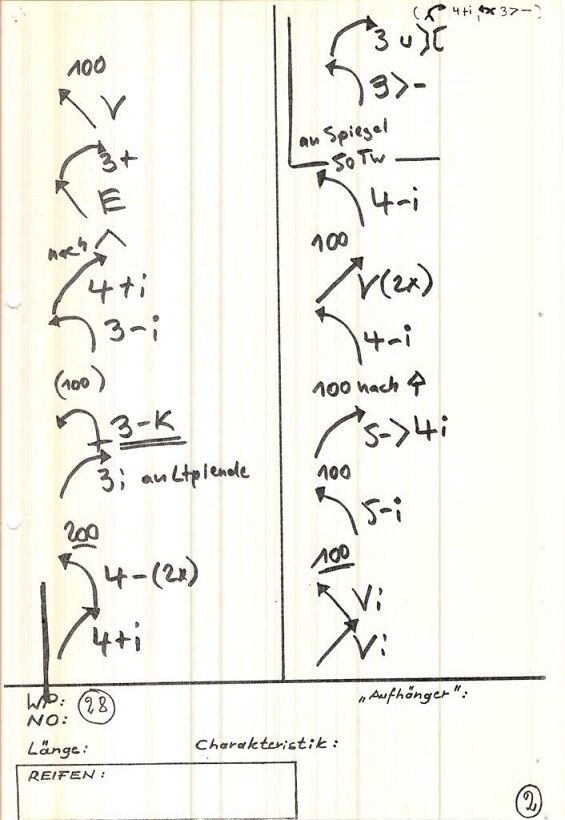 100
V
3+
E
nach
4+i
3-i
(100)
3-K
3i an Ltplende
200
4-(2x)
4+i
( 4+i, 3>-)
3 u
3>-
an Spiegel
50 Tw
4-i
100
V(2x)
4-i
100 nach
5->4i
100
5-i
100
Vi
Vi
WP: 28
NO:
„Aufhänger":
Länge:
Charakteristik:
REIFEN:
2